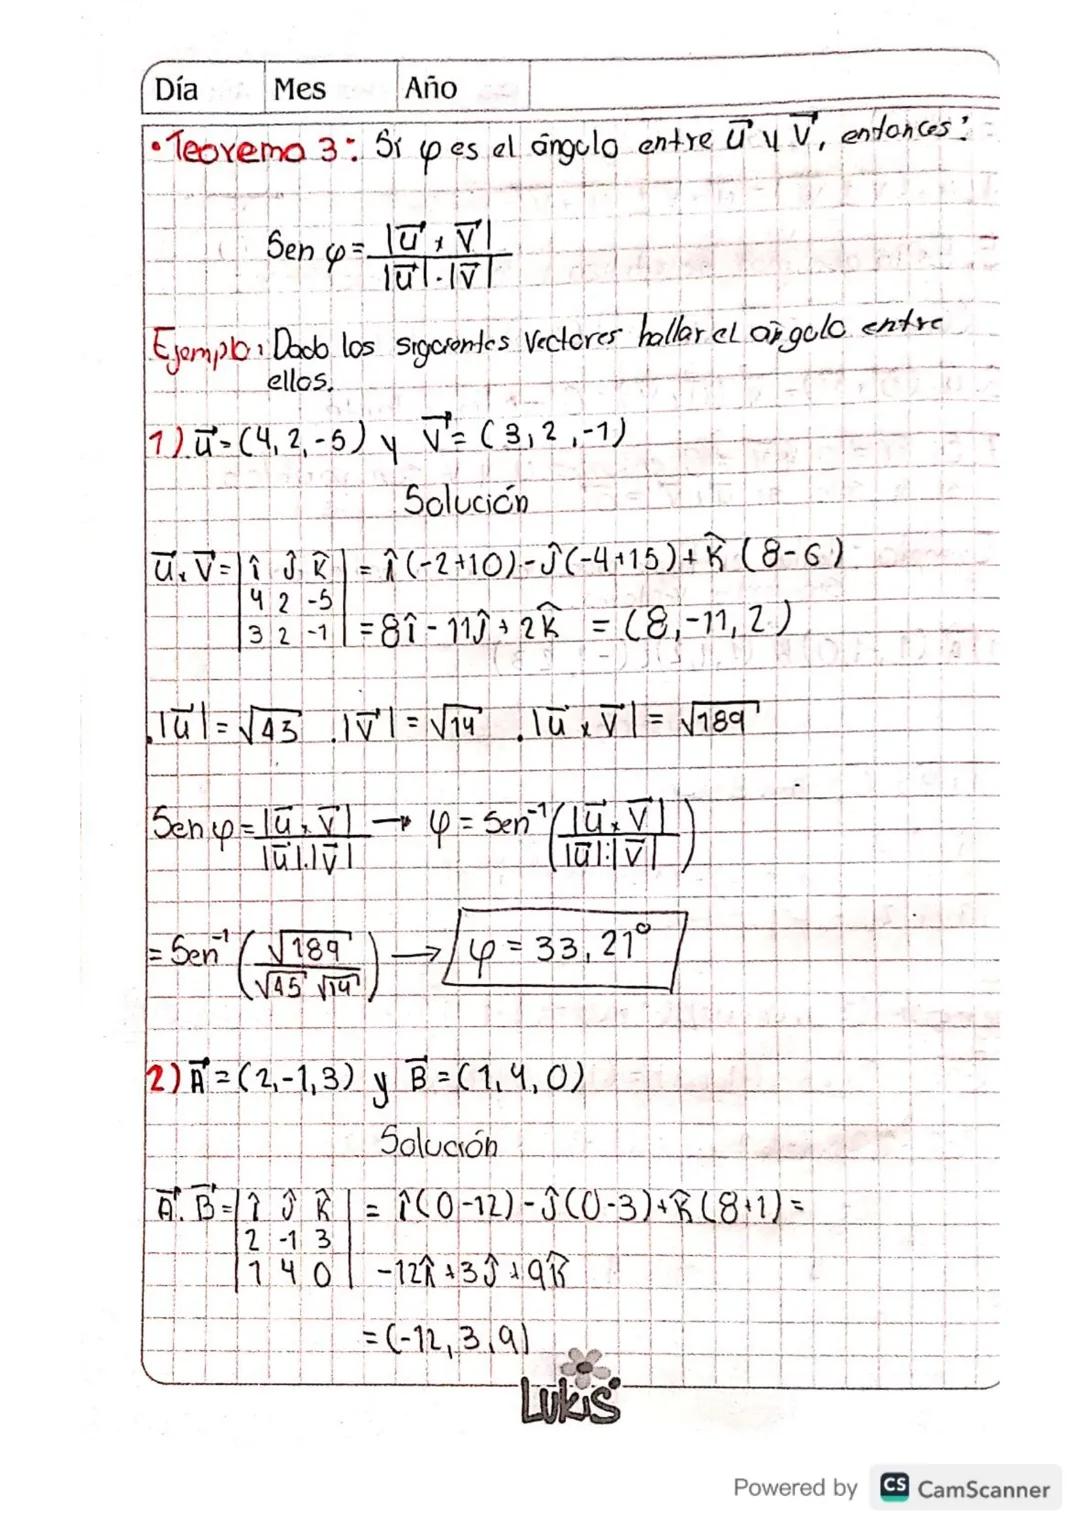 Día Mes Año
• Teorema 3: Si φ es el ángulo entre u⃗ y v⃗, entonces:
Sen φ = |u⃗ x v⃗| / |u⃗|.|v⃗|
Ejemplo: Dado los siguientes Vectores hallar el ángulo entre
ellos.
1) u⃗ = (4, 2, -5) y v⃗ = (3, 2, -1)
Solución
u⃗ x v⃗ = | î ĵ k̂ | = î(-2+10) - ĵ(-4+15) + k̂(8-6)
4 2 -5
3 2 -1 | = 8î - 11ĵ + 2k̂ = (8, -11, 2)
.|u⃗| = √45 .|v⃗| = √14 .|u⃗ x v⃗| = √189
Sen φ = |u⃗ x v⃗| / |u⃗|.|v⃗| → φ = Sen⁻¹(|u⃗ x v⃗| / |u⃗|.|v⃗|)
= Sen⁻¹(√189 / √45 √14) → φ = 33,21°
2) A⃗ = (2, -1, 3) y B⃗ = (1, 4, 0)
Solución
A⃗. B⃗ = | î ĵ k̂ | = î(0-12) - ĵ(0-3) + k̂(8+1) =
2 -1 3
1 4 0 | -12î + 3ĵ + 9k̂
= (-12, 3, 9)
Lukis
Powered by CS CamScanner